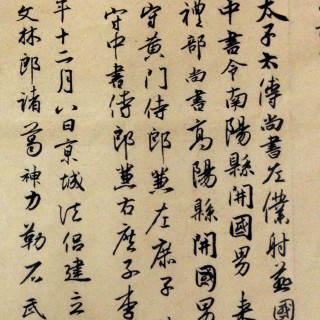 太子太傅尚書左僕射燕國
中書令南陽縣開國男來
禮部尚書高陽縣開國男
守黃門侍郎兼左庶子
守中書侍郎兼右庶子李
年十二月八日京城法侶建立
文林郎諸葛神力勒石武